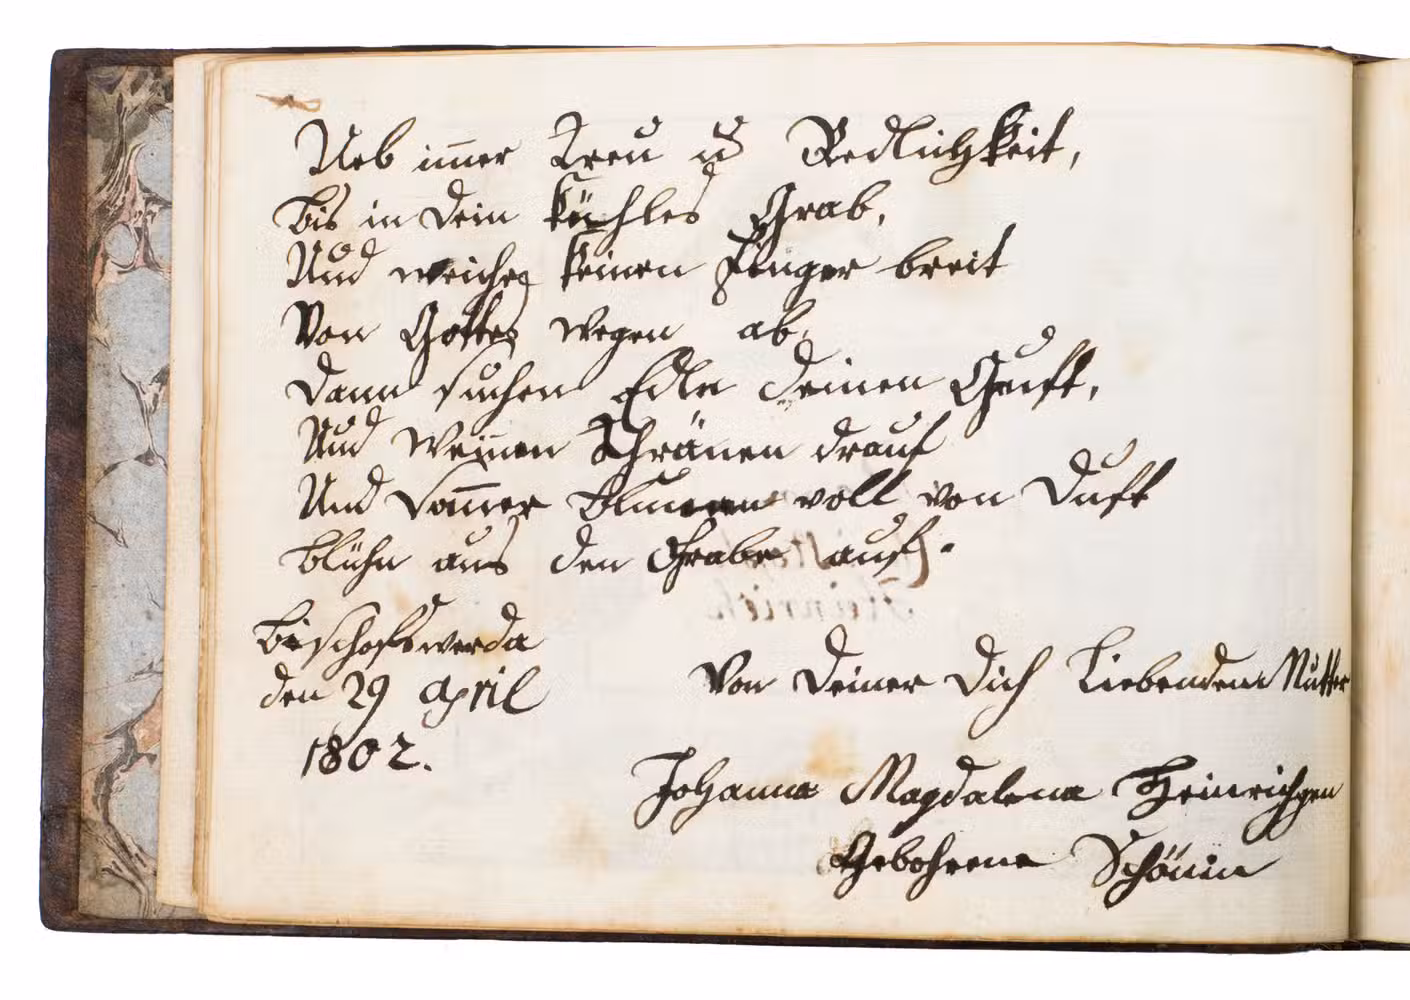 Ueb im̅er Treu u Redlichkeit,
bis in dein kühles Grab,
Und weiche keinen Finger breit
Von Gottes wegen ab,
Dann suchen Edle deinen Gruft,
Und weinen Thränen drauf
Und Som̅er blumen voll von Duft
blühn aus den Grabe auf.
bischofswerda
den 29 april
1802.
Von deiner dich Liebenden Mutter
Johanna Magdalena Heinrichgen
Gebohrene Schönin